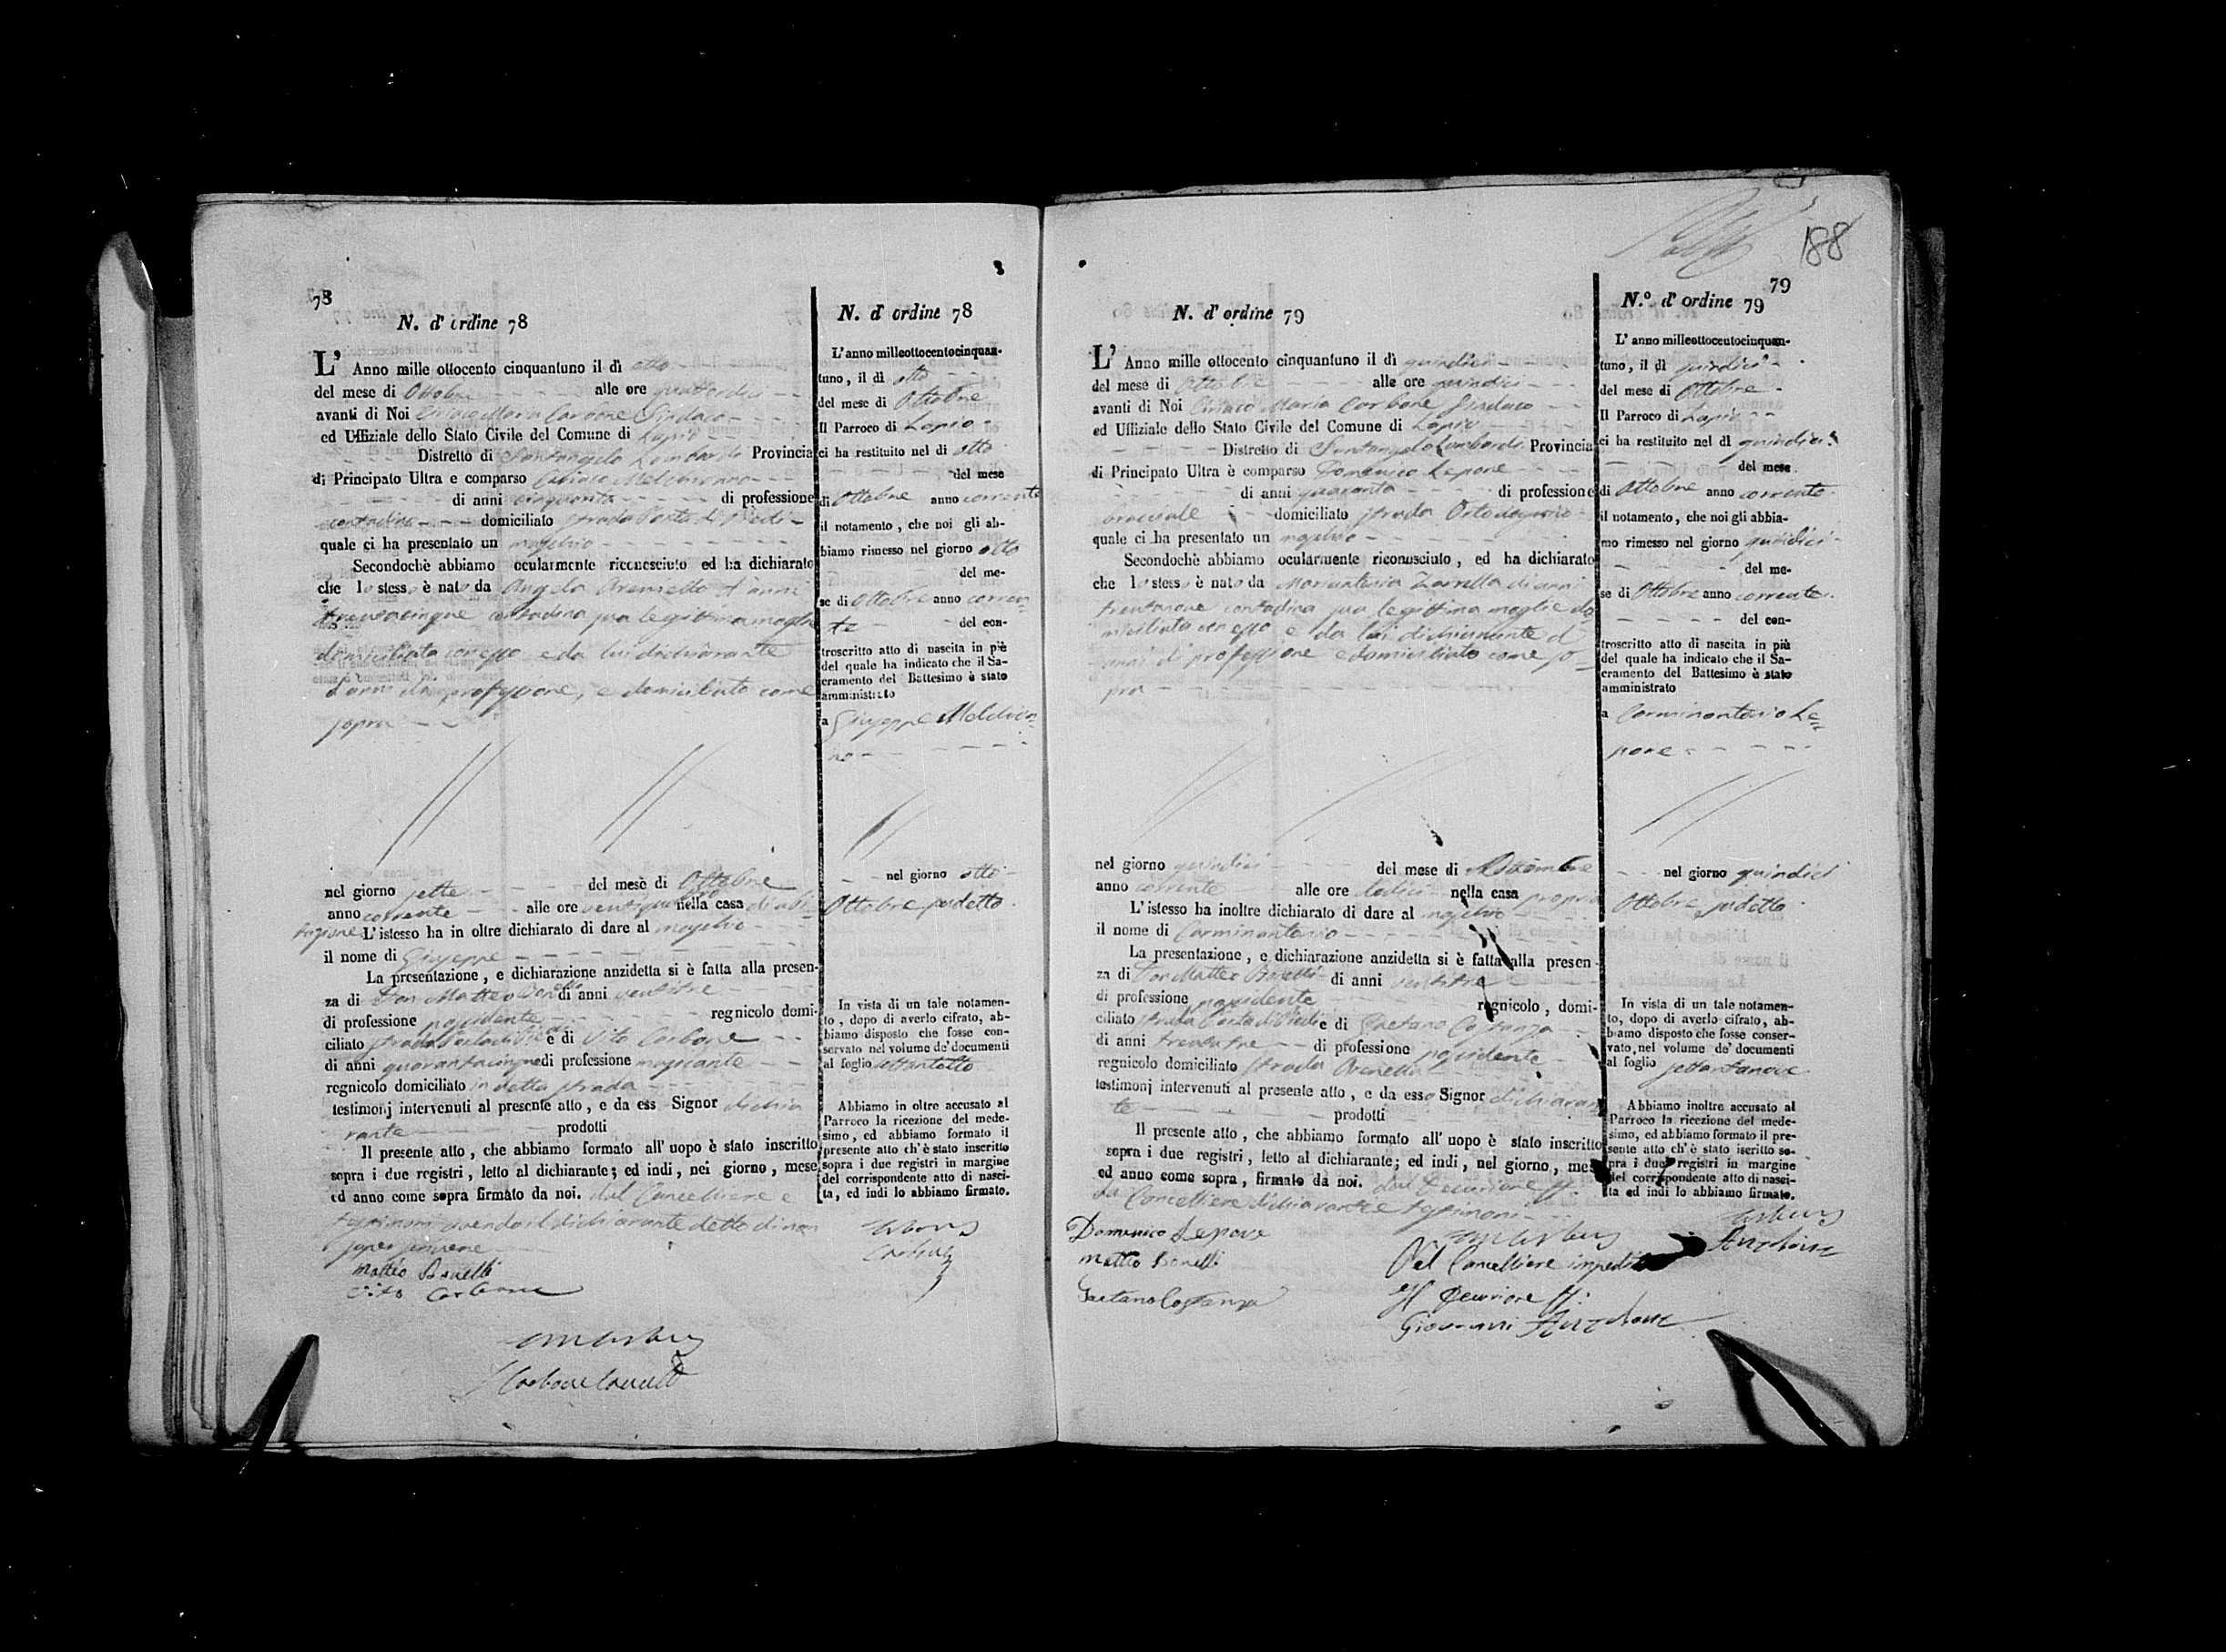 78
N. d' ordine 78
L' Anno mille ottocento cinquantuno il dì otto
del mese di Ottobre alle ore quattordici
avanti di Noi Ciriaco Maria Carbone Sindaco
ed Uffiziale dello Stato Civile del Comune di Lapio
Distretto di Santangelo Lombardi Provincia
di Principato Ultra e comparso
di anni cinquanta di professione
contadino domiciliato strada Porta di Piedi
quale ci ha presentato un maschio
Secondochè abbiamo ocularmente riconosciuto ed ha dichiarato
che lo stesso è nato da Angela d'anni
trentacinque contadina sua legittima moglie
domiciliata con esso e da lui dichiarante
d'anni professione, e domiciliato come
sopra
nel giorno sette del mese di Ottobre
anno corrente alle ore nella casa di abi-
tazione L'istesso ha in oltre dichiarato di dare al maschio
il nome di Giuseppe
La presentazione, e dichiarazione anzidetta si è fatta alla presen-
za di Don Matteo Bonelli di anni ventitre
di professione possidente regnicolo domi-
ciliato strada e di Vito Carbone
di anni quarantacinque di professione
regnicolo domiciliato in detta strada
testimonj intervenuti al presente atto, e da ess Signor dichia
rante prodotti
Il presente atto, che abbiamo formato all' uopo è stato inscritto
sopra i due registri, letto al dichiarante; ed indi, nei giorno, mese
ed anno come sopra firmato da noi. dal Cancelliere e
testimoni avendo il dichiarante detto di non
saper scrivere
Matteo Bonelli
Vito Carbone
N. d' ordine 78
L' anno milleottocentocinquan-
tuno, il dì otto
del mese di Ottobre
Il Parroco di Lapio
ci ha restituito nel di otto
del mese
di Ottobre anno corrente
il notamento, che noi gli ab-
biamo rimesso nel giorno otto
del me-
se di Ottobre anno corren-
te del con-
troscritto atto di nascita in piè
del quale ha indicato che il Sa-
cramento del Battesimo è stato
amministrato
a Giuseppe
no
nel giorno otto
Ottobre sudetto
In vista di un tale notamen-
to, dopo di averlo cifrato, ab-
biamo disposto che fosse con-
servato nel volume de' documenti
al foglio settantotto
Abbiamo in oltre accusato al
Parroco la ricezione del mede-
simo, ed abbiamo formato il
presente atto ch' è stato inscritto
sopra i due registri in margine
del corrispondente atto di nasci-
ta, ed indi lo abbiamo firmato.
188
79
N. d' ordine 79
L' Anno mille ottocento cinquantuno il dì quindici
del mese di Ottobre alle ore quindici
avanti di Noi Ciriaco Maria Carbone Sindaco
ed Uffiziale dello Stato Civile del Comune di Lapio
Distretto di Santangelo Lombardi Provincia
di Principato Ultra è comparso Domenico Lepore
di anni quaranta di professione
bracciale domiciliato strada
quale ci ha presentato un maschio
Secondochè abbiamo ocularmente riconosciuto, ed ha dichiarato
che lo stesso è nato da Mariantonia Zarrella di anni
trentanove contadina sua legittima moglie do
miciliata con esso e da lui dichiarante d'
anni di professione e domiciliato come so
pra
nel giorno quindici del mese di
anno corrente alle ore nella casa propria
L'istesso ha inoltre dichiarato di dare al maschio
il nome di Carminantonio
La presentazione, e dichiarazione anzidetta si è fatta alla presen-
za di Don Matteo Bonelli di anni ventitre
di professione possidente regnicolo, domi-
ciliato strada Porta di Piedi e di Gaetano Costanza
di anni trentatre di professione possidente
regnicolo domiciliato strada
testimonj intervenuti al presente atto, e da esso Signor dichiaran
te prodotti
Il presente atto, che abbiamo formato all' uopo è stato inscritto
sopra i due registri, letto al dichiarante; ed indi, nel giorno, mese
ed anno come sopra, firmato da noi. dal Decurione ff.
da Cancelliere dichiarante e testimoni
Domenico Lepore
Matteo Bonelli
Gaetano Costanza
Pel Cancelliere impedito
Il Decurione ff.
Giovanni
N.º d' ordine 79
L' anno milleottocentocinquan-
tuno, il dì quindici
del mese di Ottobre
Il Parroco di Lapio
ci ha restituito nel dì quindici
del mese
di Ottobre anno corrente
il notamento, che noi gli abbia-
mo rimesso nel giorno quindici
del me-
se di Ottobre anno corrente
del con-
troscritto atto di nascita in più
del quale ha indicato che il Sa-
cramento del Battesimo è stato
amministrato
a Carminantonio Le=
pore
nel giorno quindici
Ottobre sudetto
In vista di un tale notamen-
to, dopo di averlo cifrato, ab-
biamo disposto che fosse conser-
vato, nel volume de' documenti
al foglio settantanove
Abbiamo inoltre accusato al
Parroco la ricezione del mede-
simo, ed abbiamo formato il pre-
sente atto ch' è stato iscritto so-
pra i due registri in margine
del corrispondente atto di nasci-
ta ed indi lo abbiamo firmato.